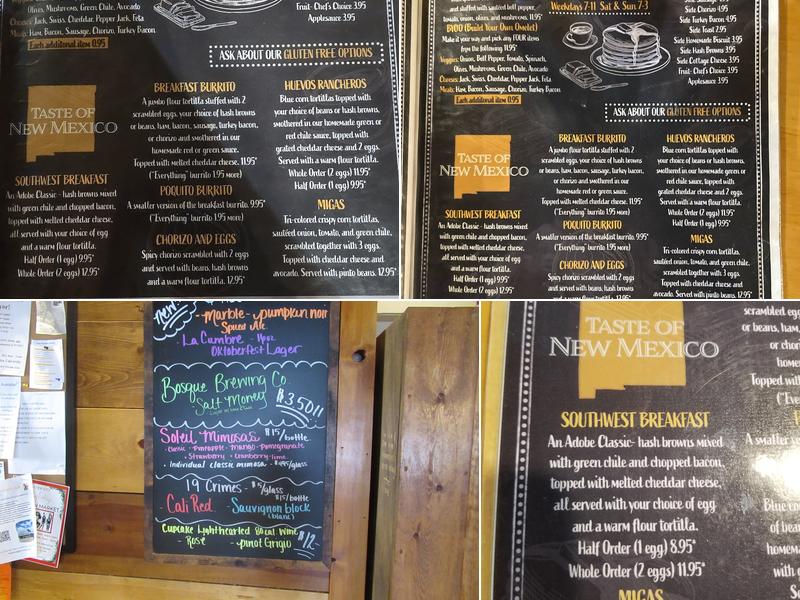 Olives, Mushrooms, Green Chile, Avocado
Cheeses: Jack, Swiss, Cheddar, Pepper Jack, Feta
Meats: Ham, Bacon, Sausage, Chorizo, Turkey Bacon
Each additional item 0.95
Fruit- Chef's Choice 3.95
Applesauce 3.95
ASK ABOUT OUR GLUTEN FREE OPTIONS
TASTE OF
NEW MEXICO
SOUTHWEST BREAKFAST
An Adobe Classic- hash browns mixed
with green chile and chopped bacon,
topped with melted cheddar cheese,
all served with your choice of egg
and a warm flour tortilla.
Half Order (1 egg) 9.95*
Whole Order (2 eggs) 12.95*
BREAKFAST BURRITO
A jumbo flour tortilla stuffed with 2
scrambled eggs, your choice of hash browns
or beans, ham, bacon, sausage, turkey bacon,
or chorizo and smothered in our
homemade red or green sauce.
Topped with melted cheddar cheese. 11.95*
("Everything" burrito 1.95 more)
POQUITO BURRITO
A smaller version of the breakfast burrito. 9.95*
("Everything" burrito 1.95 more)
CHORIZO AND EGGS
Spicy chorizo scrambled with 2 eggs
and served with beans, hash browns
and a warm flour tortilla. 12.95*
HUEVOS RANCHEROS
Blue corn tortillas topped with
your choice of beans or hash browns,
smothered in our homemade green or
red chile sauce, topped with
grated cheddar cheese and 2 eggs.
Served with a warm flour tortilla.
Whole Order (2 eggs) 11.95*
Half Order (1 egg) 9.95*
MIGAS
Tri-colored crispy corn tortillas,
sautéed onion, tomato, and green chile,
scrambled together with 3 eggs.
Topped with cheddar cheese and
avocado. Served with pinto beans. 12.95*
and stuffed with sautéed bell pepper,
tomato, onion, olives, and mushrooms. 11.95*
BYOO (Build Your Own Omelet)
Make it your way and pick any FOUR items
from the following 11.95*
Veggies: Onion, Bell Pepper, Tomato, Spinach,
Olives, Mushrooms, Green Chile, Avocado
Cheeses: Jack, Swiss, Cheddar, Pepper Jack, Feta
Meats: Ham, Bacon, Sausage, Chorizo, Turkey Bacon
Each additional item 0.95
Weekdays 7-11 Sat & Sun 7-3
Side Chorizo 4.95
Side Turkey Bacon 4.95
Side Toast 2.95
Side Homemade Biscuit 3.95
Side Hash Browns 3.95
Side Cottage Cheese 3.95
Fruit- Chef's Choice 3.95
Applesauce 3.95
ASK ABOUT OUR GLUTEN FREE OPTIONS
TASTE OF
NEW MEXICO
SOUTHWEST BREAKFAST
An Adobe Classic- hash browns mixed
with green chile and chopped bacon,
topped with melted cheddar cheese,
all served with your choice of egg
and a warm flour tortilla.
Half Order (1 egg) 9.95*
Whole Order (2 eggs) 12.95*
BREAKFAST BURRITO
A jumbo flour tortilla stuffed with 2
scrambled eggs, your choice of hash browns
or beans, ham, bacon, sausage, turkey bacon,
or chorizo and smothered in our
homemade red or green sauce.
Topped with melted cheddar cheese. 11.95*
("Everything" burrito 1.95 more)
POQUITO BURRITO
A smaller version of the breakfast burrito. 9.95*
("Everything" burrito 1.95 more)
CHORIZO AND EGGS
Spicy chorizo scrambled with 2 eggs
and served with beans, hash browns
and a warm flour tortilla. 12.95*
HUEVOS RANCHEROS
Blue corn tortillas topped with
your choice of beans or hash browns,
smothered in our homemade green or
red chile sauce, topped with
grated cheddar cheese and 2 eggs.
Served with a warm flour tortilla.
Whole Order (2 eggs) 11.95*
Half Order (1 egg) 9.95*
MIGAS
Tri-colored crispy corn tortillas,
sautéed onion, tomato, and green chile,
scrambled together with 3 eggs.
Topped with cheddar cheese and
avocado. Served with pinto beans. 12.95*
new!
-Marble- pumpkin noir
Spiced Ale.
-La Cumbre - 16oz
Oktoberfest Lager
Bosque Brewing Co.
-Salt Money
Soleil Mimosas $15/bottle
-classic -Pineapple -Mango -Pomegranate
-Strawberry -Cranberry-lime
• Individual classic mimosa
19 Crimes - $5/glass
$15/bottle
-Cali Red -Sauvignon block
(blanc)
Cupcake Lighthearted 80cal wine
-Rosé -Pinot Grigio
$12-
TASTE OF
NEW MEXICO
SOUTHWEST BREAKFAST
An Adobe Classic- hash browns mixed
with green chile and chopped bacon,
topped with melted cheddar cheese,
all served with your choice of egg
and a warm flour tortilla.
Half Order (1 egg) 8.95*
Whole Order (2 eggs) 11.95*
MIGAS
scrambled eggs
or beans, ham,
or chori
homema
Topped with
A smaller